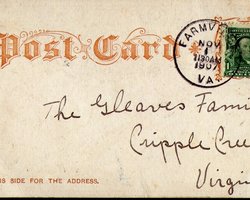 Post Card
FARMV
NOV
1
1907
VA
The Gleaves Fami
Cripple Cree
Virgin
IS SIDE FOR THE ADDRESS.